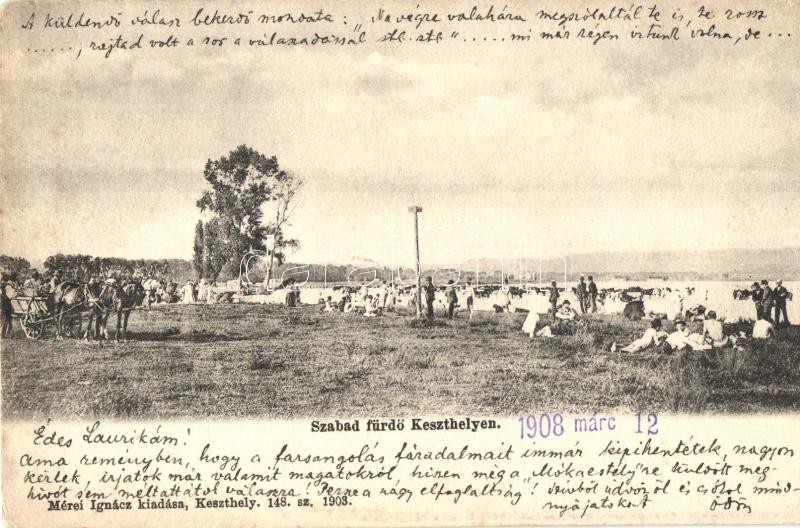 A küldendő válasz bekezdő mondata: "Na végre valahára megszólaltál te is, te rossz
......, rajtad volt a sor a válaszadással stb. stb." ..... mi már régen írtunk volna, de ...
darabanth.com
Szabad fürdő Keszthelyen.
1908 márc 12
Édes Laurikám!
Ama reményben, hogy a farsangolás fáradalmait immár kipihentétek, nagyon
kérlek, írjatok már valamit magatokról, hiszen még a "Mókaestély"re küldött meg-
hívót sem méltattátok válaszra! Persze a nagy elfoglaltság! Szívből üdvözöl és csókol mind-
Mérei Ignácz kiadása, Keszthely. 148. sz. 1903.
nyájatokat Ödön